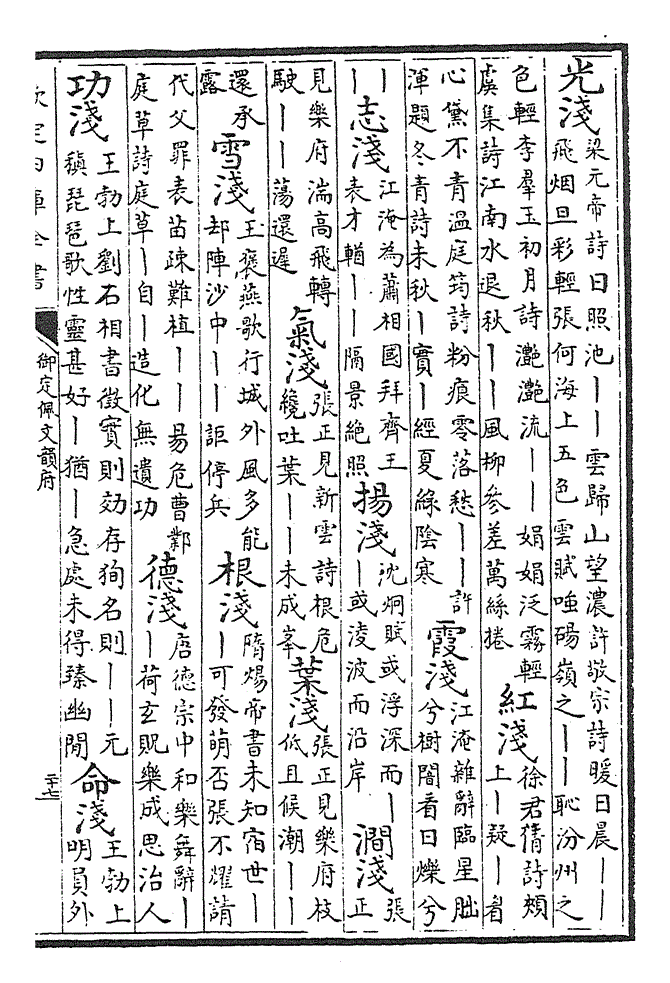 光淺梁元帝詩日照池丨丨雲歸山望濃許敬宗詩暖日晨丨丨
飛烟旦彩輕張何海上五色雲賦唯碭嶺之丨丨恥汾州之
色輕李羣玉初月詩灔灔流丨丨娟娟泛霧輕紅淺徐君猜詩頰
上丨疑丨看
虞集詩江南水退秋丨丨風柳參差萬絲捲
心黛不青温庭筠詩粉痕零落愁丨丨許
渾題冬青詩未秋丨實丨經夏綠陰寒霞淺江淹雜辭臨星朏
兮樹闇看日爍兮
丨丨志淺江淹為蕭相國拜齊王
表才輶丨丨隔景絶照揚淺沈炯賦或浮深而丨
丨或淩波而沿岸澗淺張
正
見樂府湍高飛轉
駛丨丨蕩還遲氣淺張正見新雲詩根危
纔吐葉丨丨未成峯葉淺張正見樂府枝
低且候潮丨丨
還承
露雪淺王褒燕歌行城外風多能
却陣沙中丨丨詎停兵根淺隋煬帝書未知宿世丨
丨可發萌否張不耀請
代父罪表苗疎難植丨丨丨易危曹鄴
庭草詩庭草丨自丨造化無遺功德淺唐德宗中和樂舞辭丨
丨荷玄貺樂成思治人
功淺王勃上劉右相書徵實則効存狥名則丨丨元
稹琵琶歌性靈甚好丨猶丨急處未得臻幽閒命淺王勃上
明員外
欽定四庫全書
御定佩文韻府
二十七